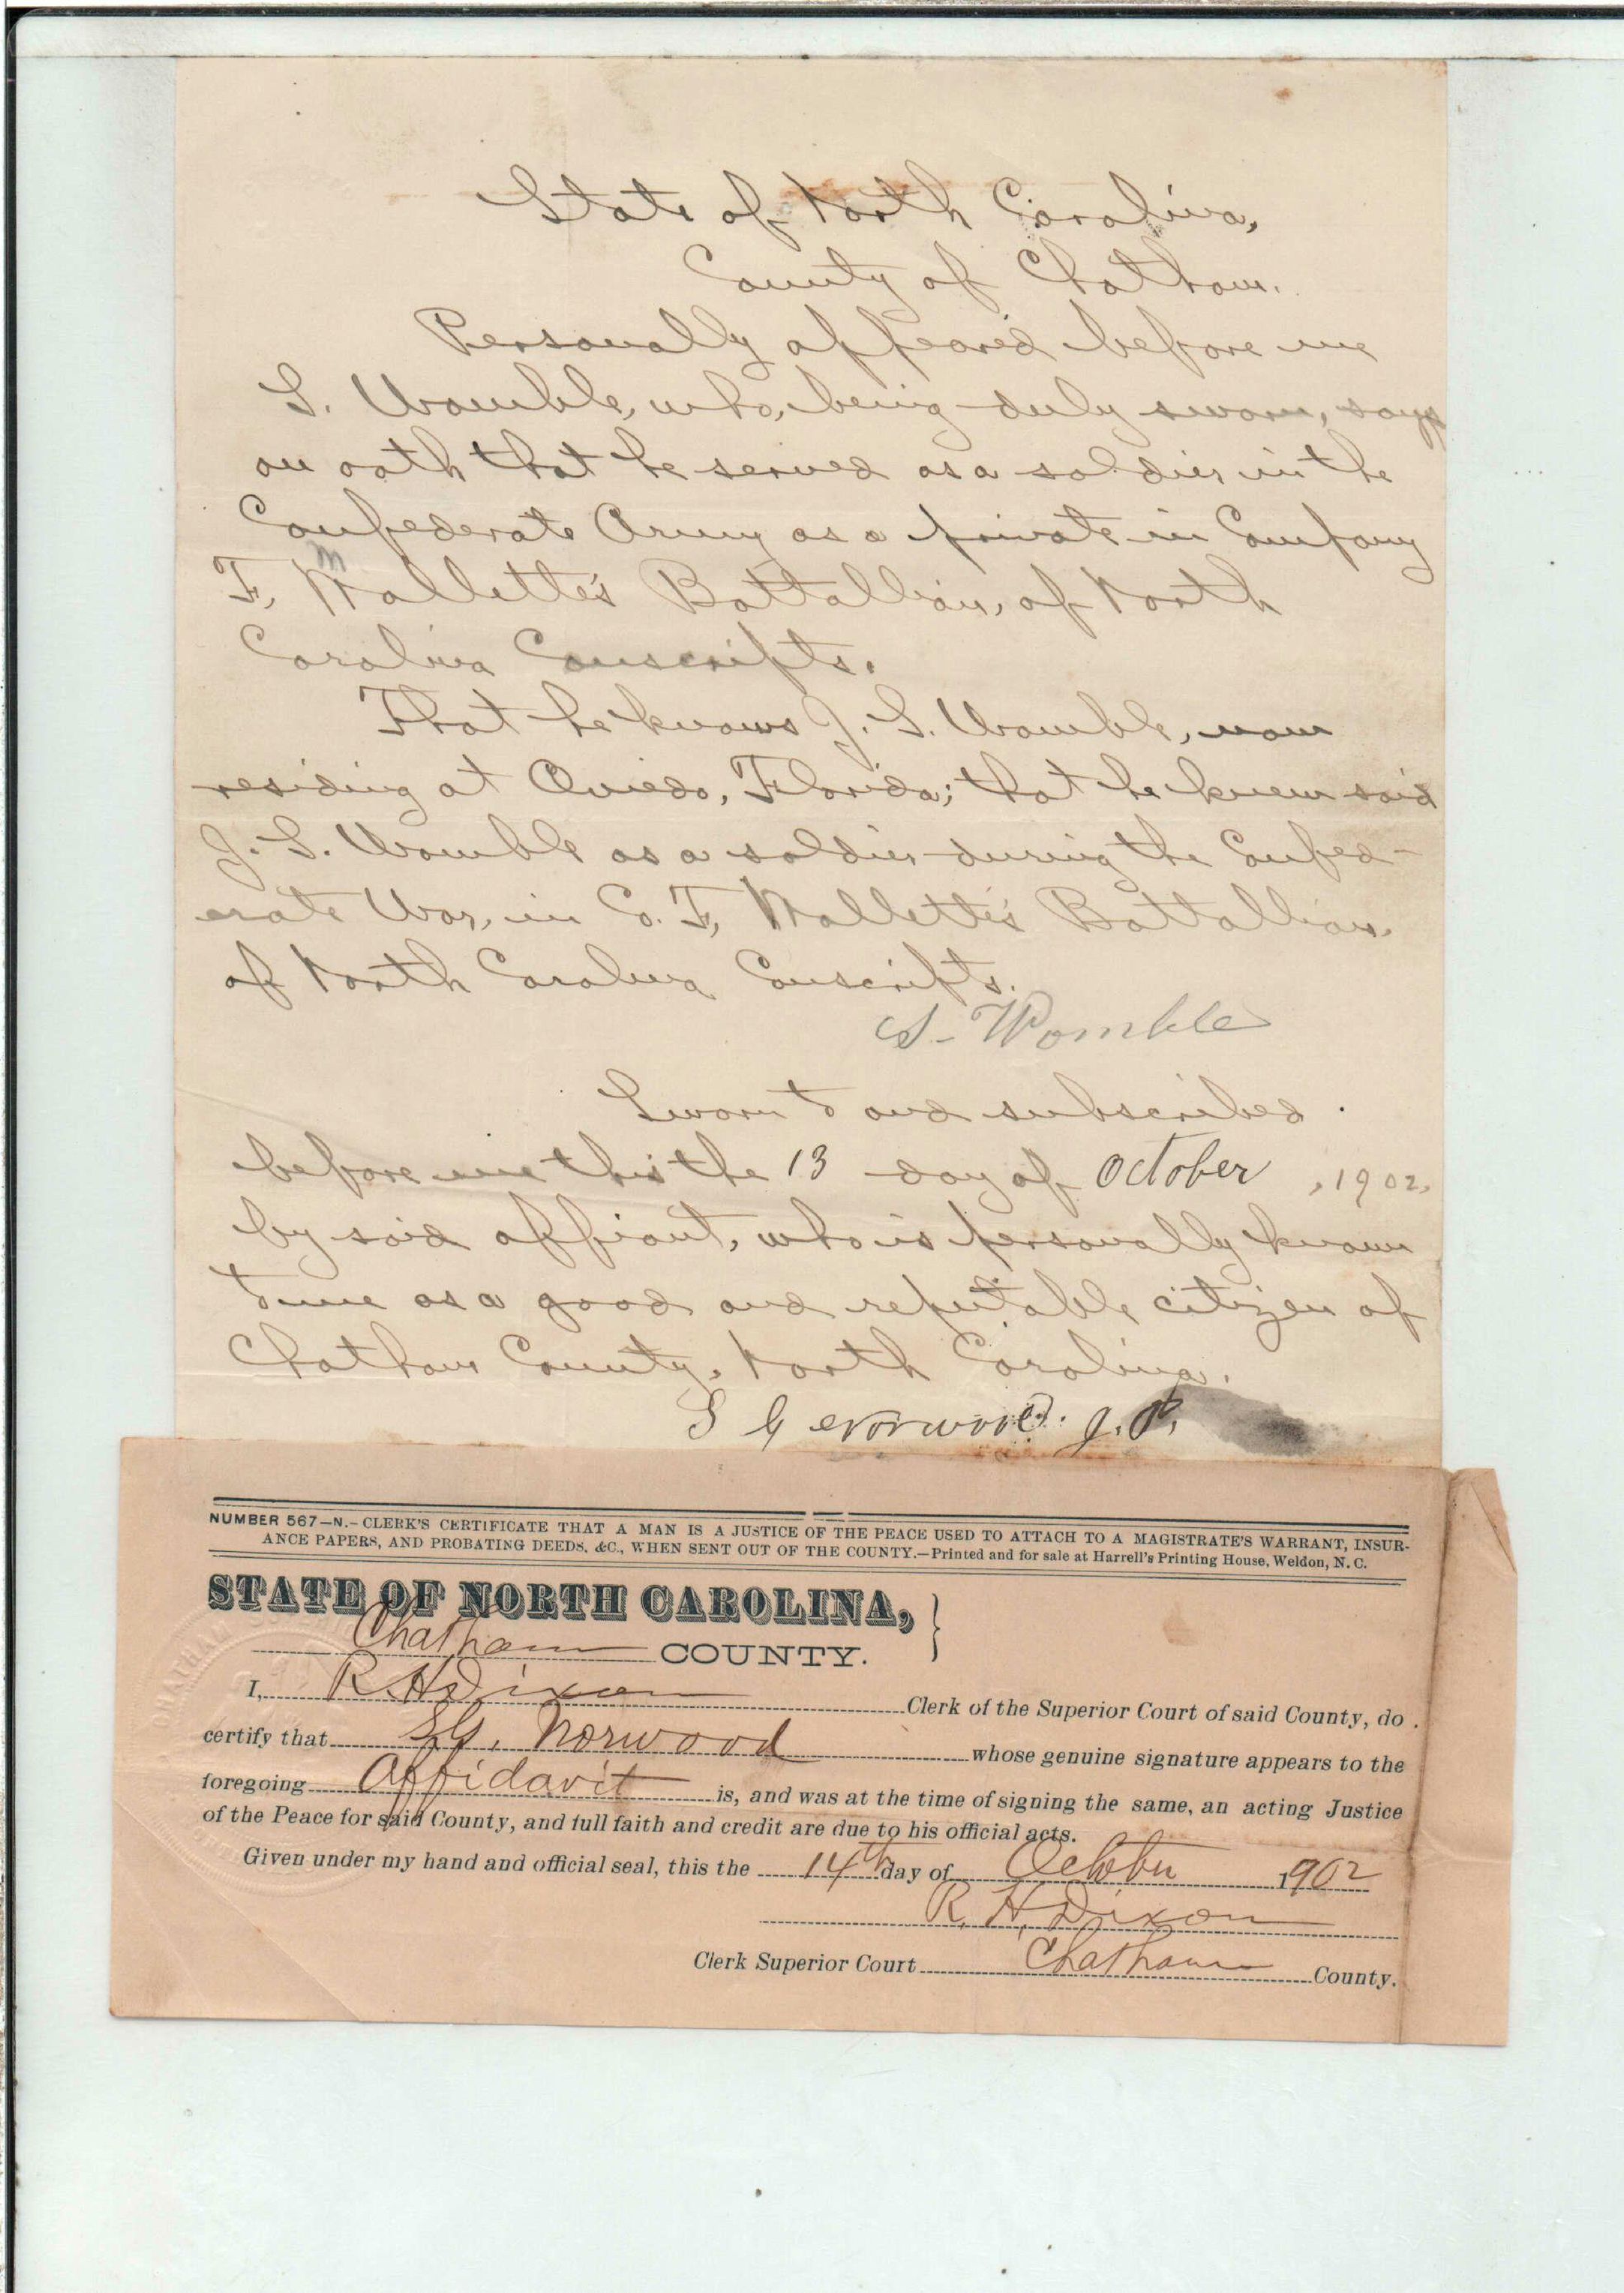 State of North Carolina,
County of Chatham.
Personally appeared before me
S. Womble, who, being duly sworn, says
on oath that he served as a soldier in the
Confederate Army as a private in Company
m
F, Mallette's Battallion, of North
Carolina Conscripts.
That he knows J. S. Womble, now
residing at Oviedo, Florida; that he knew said
J. S. Womble as a soldier during the Confed-
erate War, in Co. F, Mallette's Battallion
of North Carolina Conscripts.
S. Womble
Sworn to and subscribed
before me this the 13 day of October, 1902,
by said affiant, who is personally known
to me as a good and reputable citizen of
Chatham County, North Carolina.
S G Norwood. J. P.
NUMBER 567—N.—CLERK'S CERTIFICATE THAT A MAN IS A JUSTICE OF THE PEACE USED TO ATTACH TO A MAGISTRATE'S WARRANT, INSUR-
ANCE PAPERS, AND PROBATING DEEDS, &C., WHEN SENT OUT OF THE COUNTY.—Printed and for sale at Harrell's Printing House, Weldon, N. C.
STATE OF NORTH CAROLINA,
Chatham COUNTY.
I, R. H. Dixon Clerk of the Superior Court of said County, do
certify that S. G. Norwood whose genuine signature appears to the
foregoing Affidavit is, and was at the time of signing the same, an acting Justice
of the Peace for said County, and full faith and credit are due to his official acts.
Given under my hand and official seal, this the 14th day of October 1902
R. H. Dixon
Clerk Superior Court Chatham County.